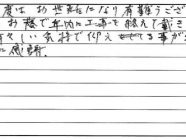 度は お世話になり有難うござ
お陰で年内に工事を終えて戴き
しい気持で迎え せてる事が
に感謝